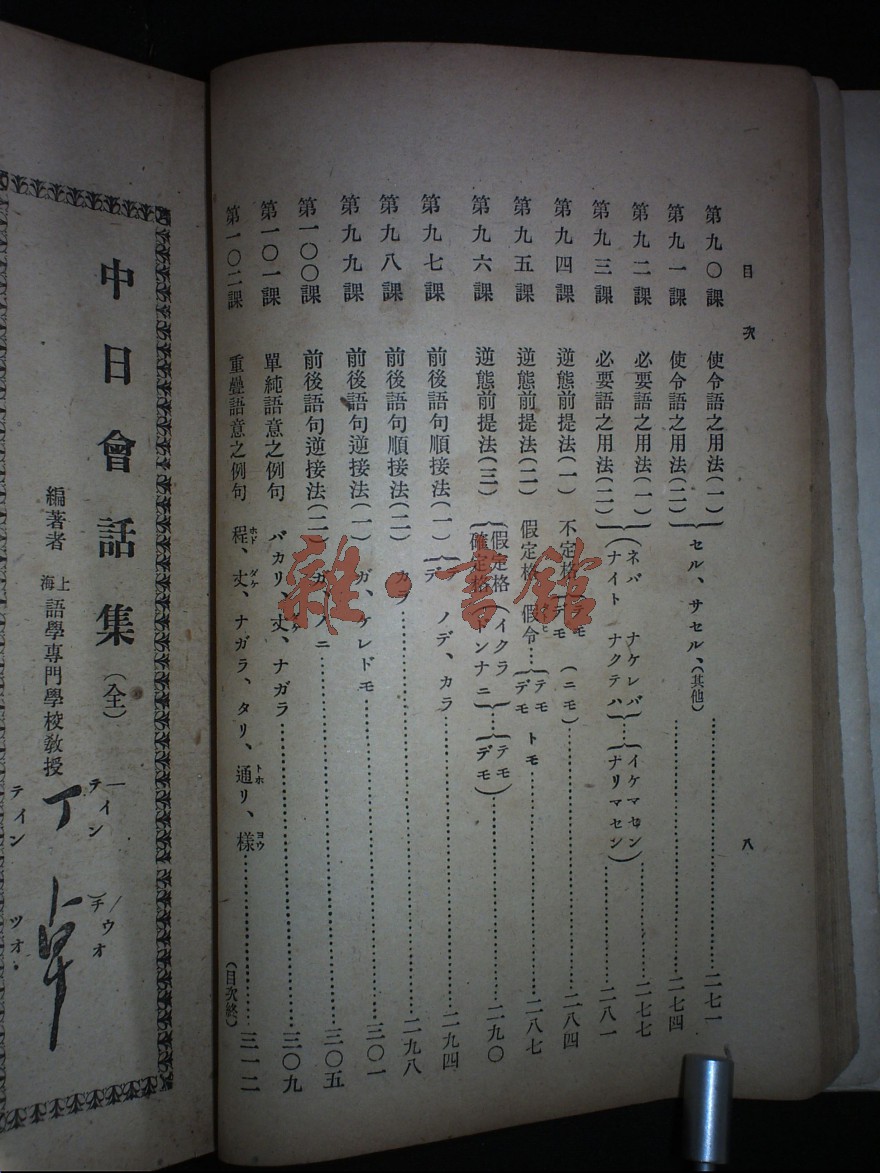 目次
八
第九〇課 使令語之用法(一) セル、サセル、(其他)……二七一
第九一課 使令語之用法(二)……二七四
第九二課 必要語之用法(一) (ネバ ナケレバ)……(イケマセン)……二七七
第九三課 必要語之用法(二) (ナイト ナクテハ)……(ナリマセン)……二八一
第九四課 逆態前提法(一) 不定格(デモ)(ニモ)……二八四
第九五課 逆態前提法(二) 假定格 假令…(テモ デモ トモ……二八七
第九六課 逆態前提法(三) 假定格 確定格 (イクラ ドンナニ)……(テモ デモ)……二九〇
第九七課 前後語句順接法(一) デ ノデ、カラ……二九四
第九八課 前後語句順接法(二) カラ……二九八
第九九課 前後語句逆接法(一) ガ、ケレドモ……三〇一
第一〇〇課 前後語句逆接法(二) ガ、ノニ……三〇五
第一〇一課 單純語意之例句 バカリ、丈、ナガラ……三〇九
第一〇二課 重疊語意之例句 程ホド、丈ダケ、ナガラ、タリ、通トホリ、樣ヨウ……三一二
(目次終)
中日會話集(全)
編著者 上海語學專門學校教授 丁卓
テイン チウオ
テイン ツオ
雜·書館